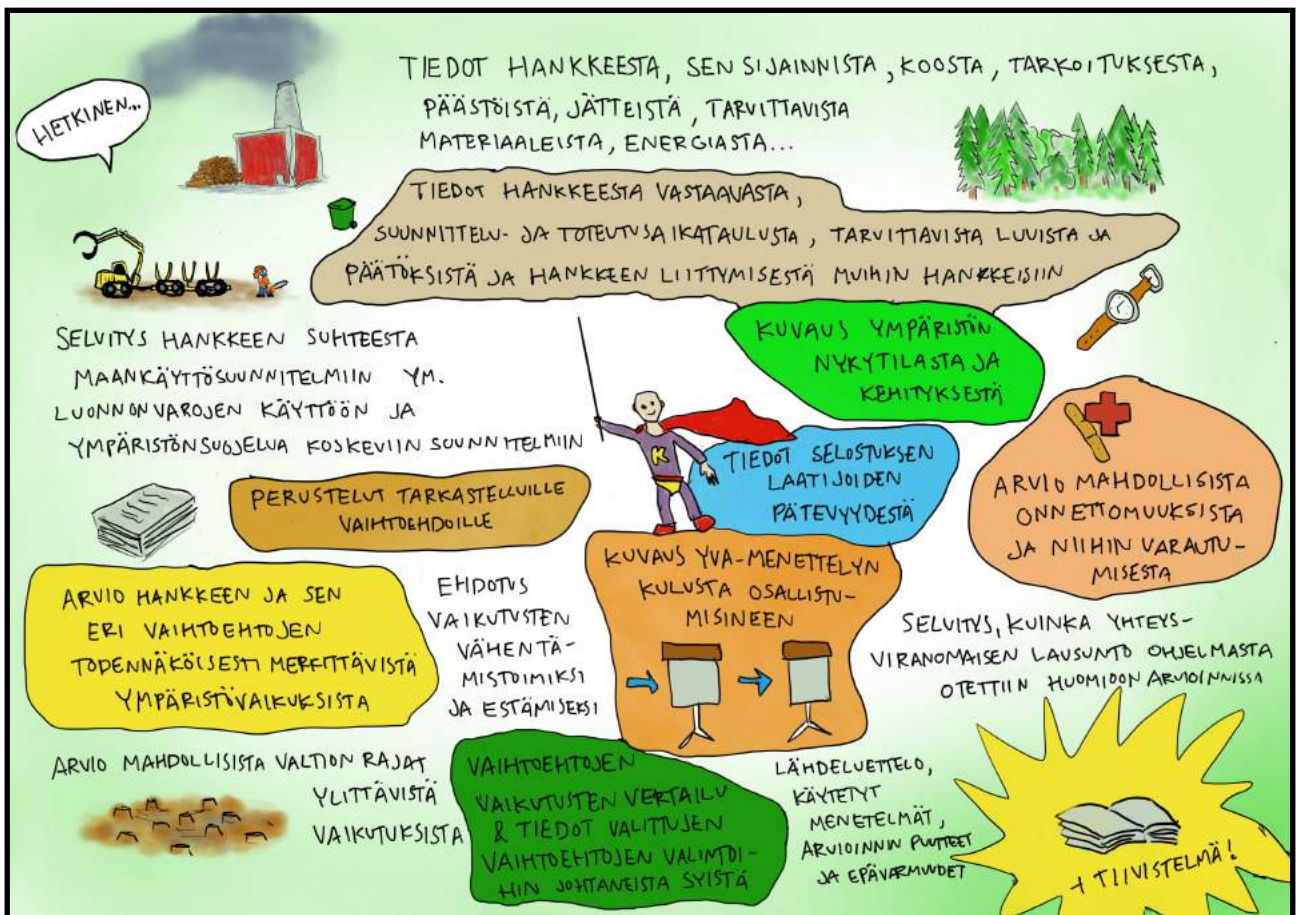 HETKINEN...
TIEDOT HANKKEESTA, SEN SIJAINNISTA, KOOSTA, TARKOITUKSESTA,
PÄÄSTÖISTÄ, JÄTTEISTÄ, TARVITTAVISTA
MATERIAALEISTA, ENERGIASTA...
TIEDOT HANKKEESTA VASTAAVASTA,
SUUNNITTELU- JA TOTEUTUSAIKATAULUSTA, TARVITTAVISTA LUVISTA JA
PÄÄTÖKSISTÄ JA HANKKEEN LIITTYMISESTÄ MUIHIN HANKKEISIIN
SELVITYS HANKKEEN SUHTEESTA
MAANKÄYTTÖSUUNNITELMIIN YM.
LUONNONVAROJEN KÄYTTÖÖN JA
YMPÄRISTÖNSUOJELUA KOSKEVIIN SUUNNITELMIIN
KUVAUS YMPÄRISTÖN
NYKYTILASTA JA
KEHITYKSESTÄ
K
TIEDOT SELOSTUKSEN
LAATIJOIDEN
PÄTEVYYDESTÄ
ARVIO MAHDOLLISISTA
ONNETTOMUUKSISTA
JA NIIHIN VARAUTU-
MISESTA
PERUSTELUT TARKASTELLUILLE
VAIHTOEHDOILLE
KUVAUS YVA-MENETTELYN
KULUSTA OSALLISTU-
MISINEEN
ARVIO HANKKEEN JA SEN
ERI VAIHTOEHTOJEN
TODENNÄKÖISESTI MERKITTÄVISTÄ
YMPÄRISTÖVAIKUKSISTA
EHDOTUS
VAIKUTUSTEN
VÄHENTÄ-
MISTOIMIKSI
JA ESTÄMISEKSI
SELVITYS, KUINKA YHTEYS-
VIRANOMAISEN LAUSUNTO OHJELMASTA
OTETTIIN HUOMIOON ARVIOINNISSA
ARVIO MAHDOLLISISTA VALTION RAJAT
YLITTÄVISTÄ
VAIKUTUKSISTA
VAIHTOEHTOJEN
VAIKUTUSTEN VERTAILU
& TIEDOT VALITTUJEN
VAIHTOEHTOJEN VALINTOI-
HIN JOHTANEISTA SYISTÄ
LÄHDELUETTELO,
KÄYTETYT
MENETELMÄT,
ARVIOINNIN PUUTTEET
JA EPÄVARMUUDET
+ TIIVISTELMÄ!